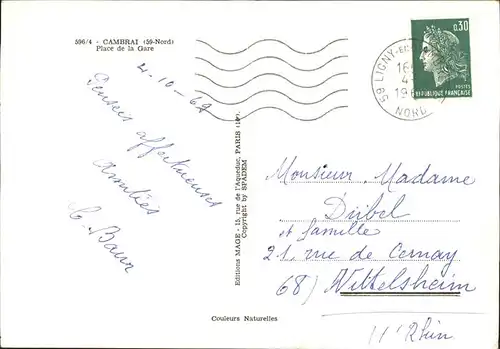 596/4 - CAMBRAI (59-Nord)
Place de la Gare
4-10-69
Pensées affectueuses
Amitiés
C. Baur
Editions MAGE - 15, rue de l'Aqueduc, PARIS-10e
Copyright by SPADEM
Couleurs Naturelles
59 LIGNY-EN
16
4-
196
NORD
0,30
POSTES
REPUBLIQUE FRANÇAISE
Monsieur. Madame
Dübel
et famille
21, rue de Cernay
68) Wittelsheim
Ht Rhin